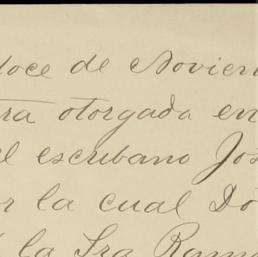 doce de Novien
ra otorgada en
l escribano Jos
r la cual Do
la Sra Ram